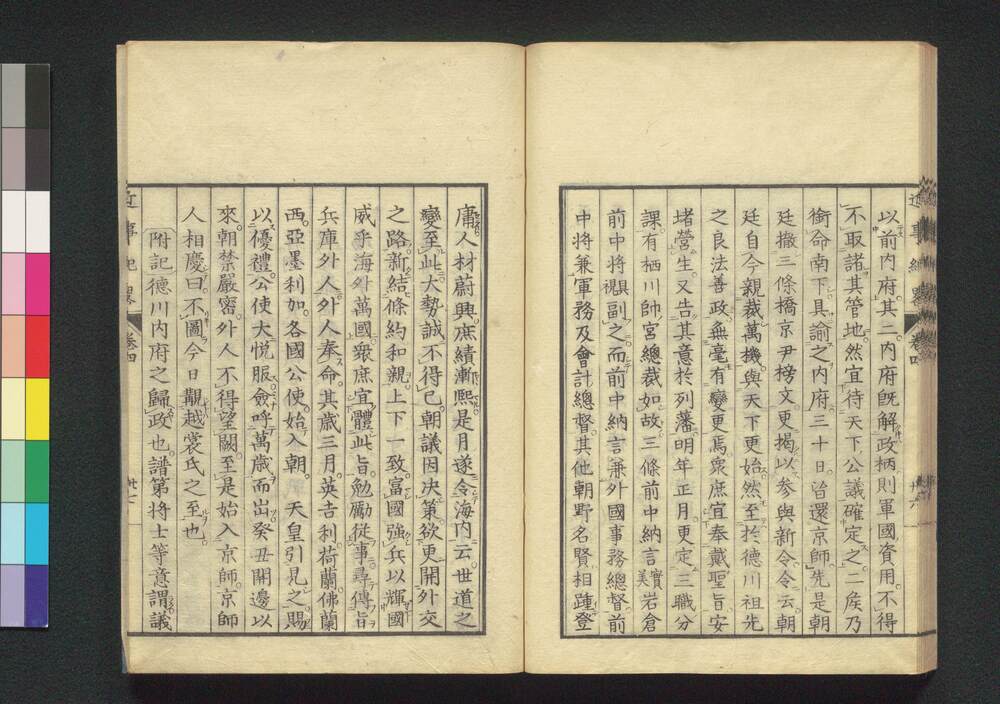 以前内府。其二。内府既解政柄則軍國資用。不得
不取諸其管地。然宜待天下公議確定之。二矦乃
銜命南下。具諭之内府。三十日。皆還京師。先是朝
廷撤三條橋京尹榜文。更揭以參與新令。令云。朝
廷自今親裁萬機。與天下更始。然至於德川祖先
之良法善政。無毫有變更焉。衆庶宜奉戴聖旨安
堵營生。又告其意於列藩。明年正月。更定三職分
課。有栖川帥宮總裁如故。三條前中納言實美岩倉
前中将具視副之。而前中納言兼外國事務總督。前
中将兼軍務及會計總督。其他朝野名賢。相踵登
庸。人材蔚興。庶績漸熙。是月遂令海内云。世道之
變至此。大勢誠不得已。朝議因決策。欲更開外交
之路。新結條約和親。上下一致。富國強兵。以輝國
威乎海外萬國。衆庶宜體此旨。勉勵從事。尋傳旨
兵庫外人。外人奉命。其歲三月。英吉利荷蘭佛蘭
西。亞墨利加。各國公使。始入朝。天皇引見之。賜
以優禮。公使大悦服。僉呼萬歲而出。癸丑開邊以
來。朝禁嚴密。外人不得望闕。至是始入京師。京師
人相慶曰。不圖今日覩越裳氏之至也。
附記德川内府之歸政也。譜第將士等意謂議
近事紀畧
卷四
卅七
卷四